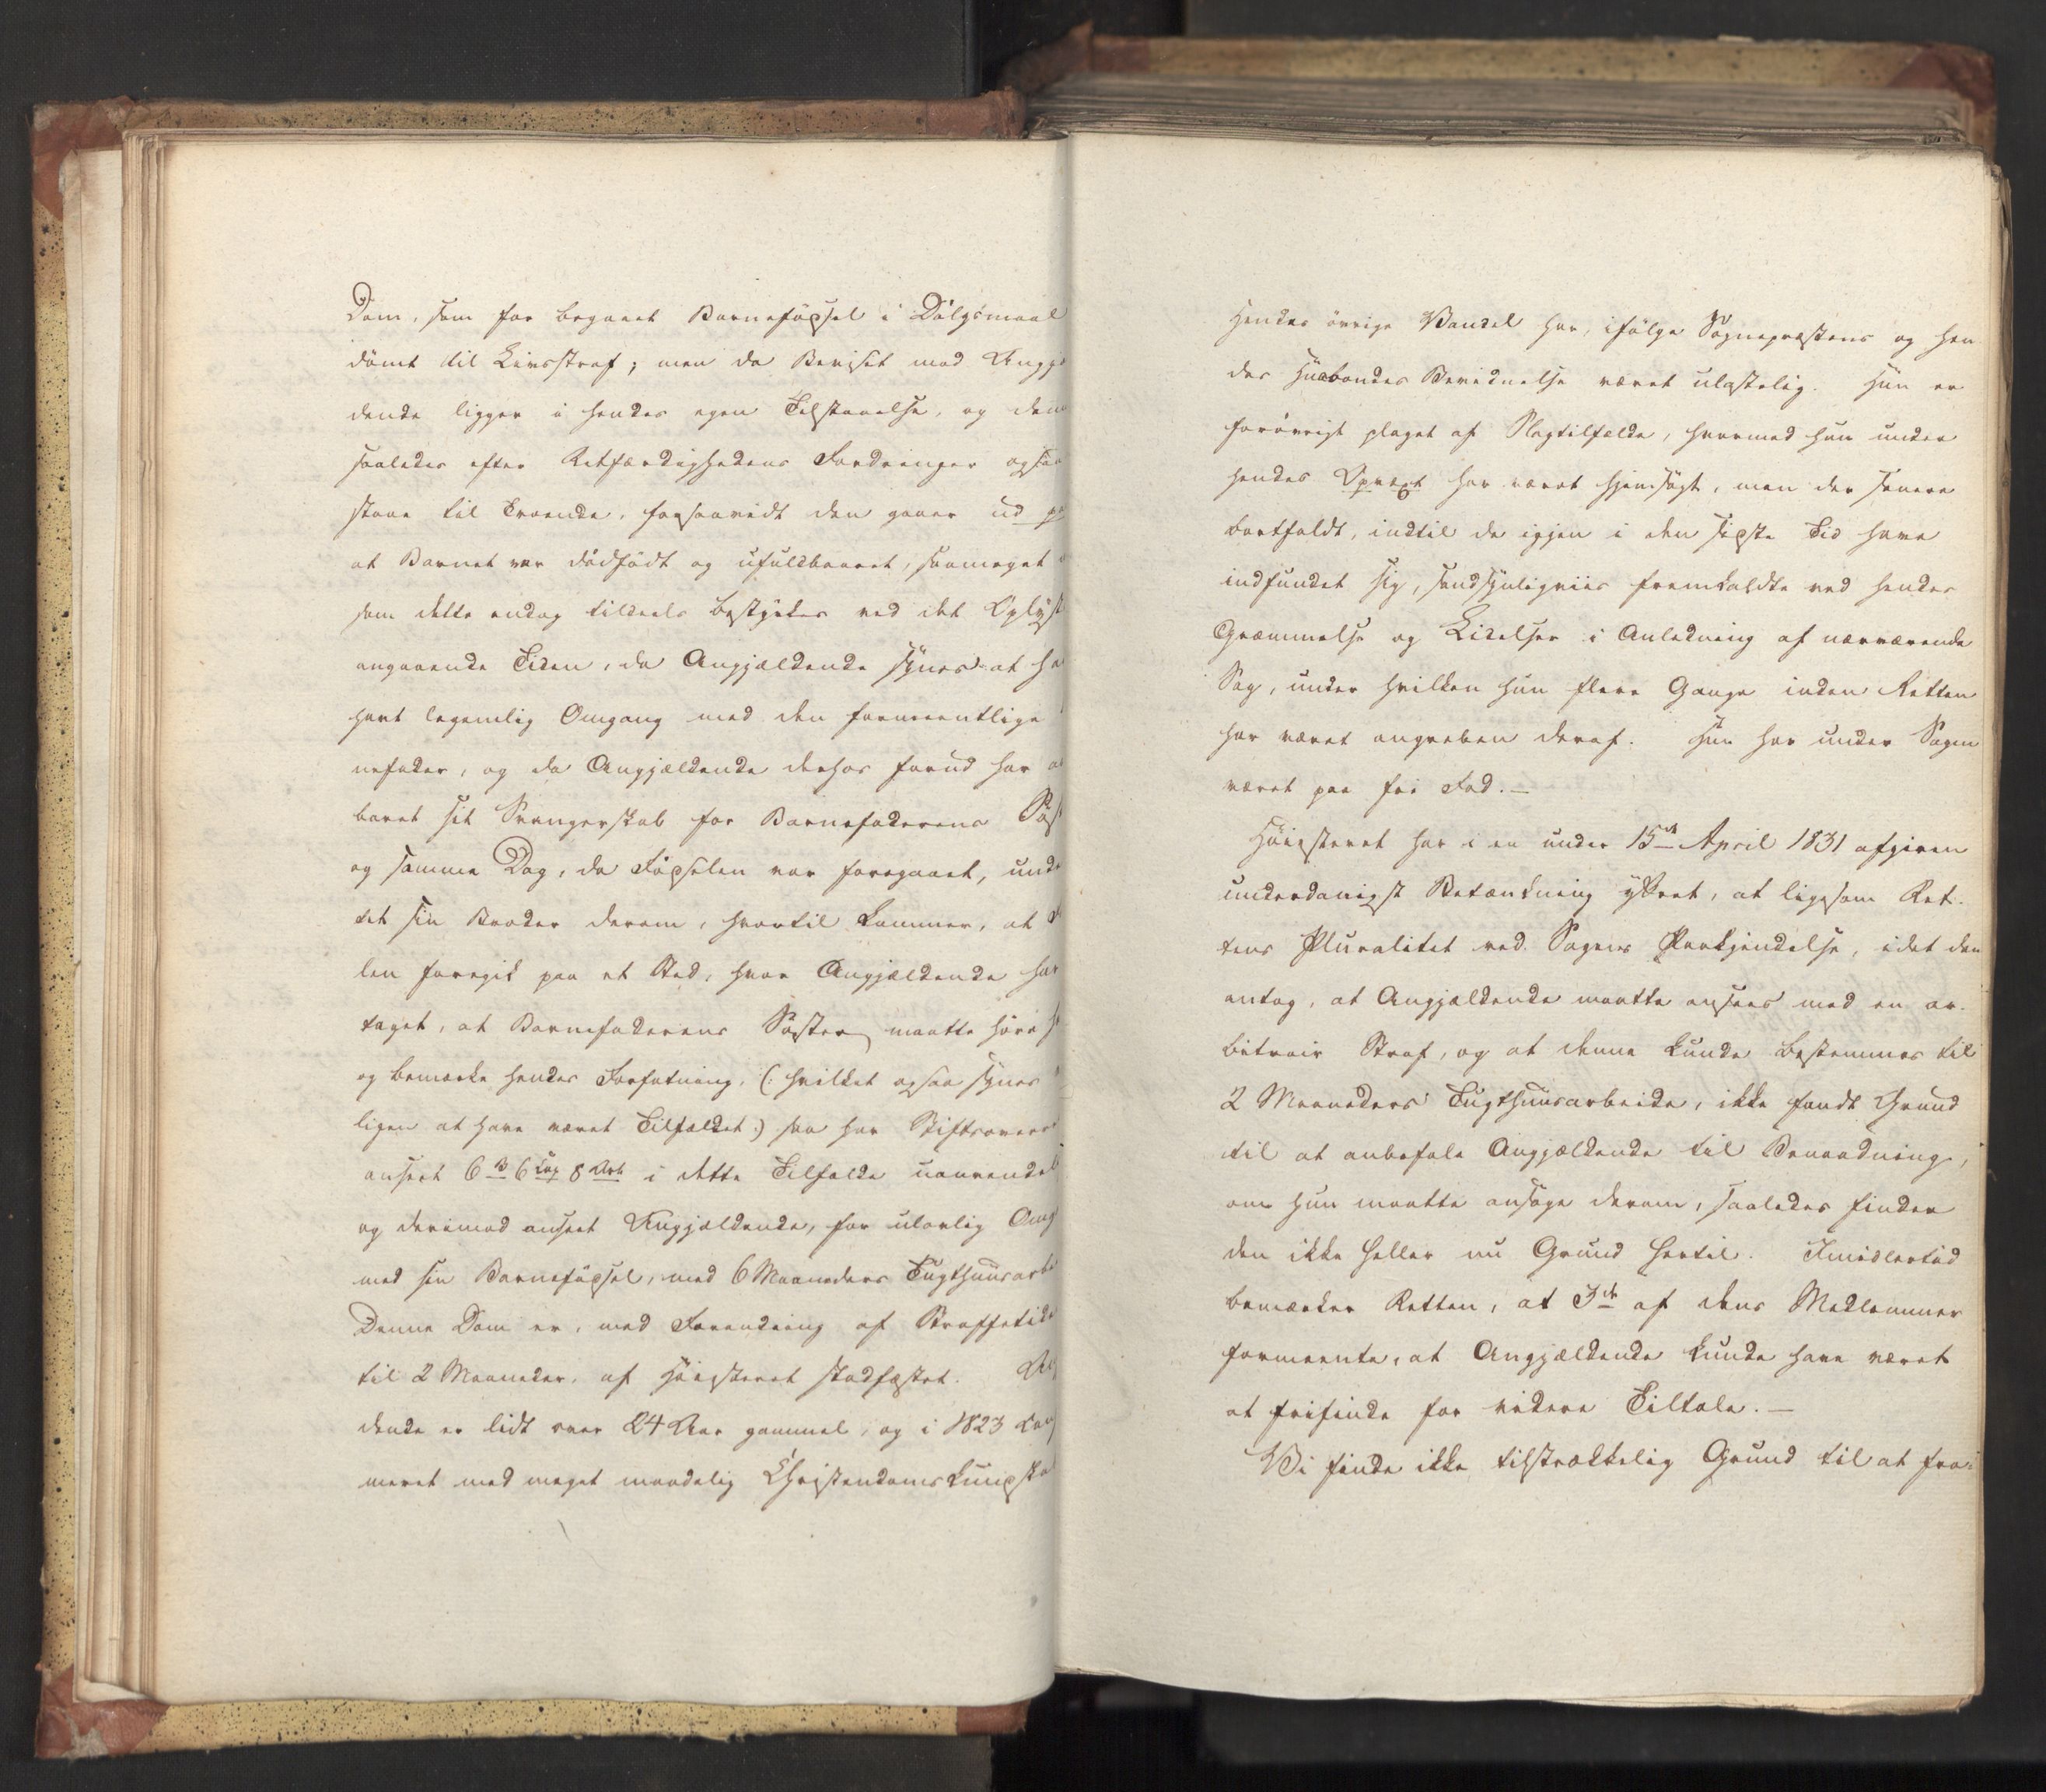 Dom, som for begaaet Barnefødsel i Dølgsmaal
dømt til Livsstraf; men da Beviset mod Angj
dende ligger i hendes egen Tilstaaelse, og den
saaledes efter Retfærdighedens Fordringer ogsaa
staae til Troende, forsaavidt den gaaer ud
at Barnet var dødfødt og ufuldbaaret, saameget
som dette endog tildeels bestyrkes ved det Oplyst
angaaende Tiden, da Angjældende synes at ha
havt legemlig Omgang med den formeentlige
nefader, og da Angjældende derhos forud har
baret sit Svangerskab for Barnefaderens Søst
og samme Dag, da Fødselen var foregaaet, unde
tet sin Broder derom, hvortil kommer, at
len foregik paa et Sted, hvor Angjældende har
taget, at Barnefaderens Søster maatte høre h
og bemærke hendes Forfatning, (: hvilket ogsaa synes
ligen at have været Tilfældet:) saa har Stiftsovere
anseet 6 B 6 Cap 8 Art i dette Tilfælde uanvendel
og derimod anseet Angjældende, for ulovlig Omg
med sin Barnefødsel, med 6 Maaneders Tugthuusarbe
Denne Dom er, med Forandring af Straffetide
til 2 Maaneder, af Høiesteret stadfæstet. Ang
dende er lidt over 24 Aar gammel, og i 1823 Con
meret med meget maadelig Christendomskundska
Hendes øvrige Vandel har, ifølge Sognepræstens og hen
des Huusbondes Bevidnelse været ulastelig. Hun er
forøvrigt plaget af Slagtilfælde, hvormed hun under
hendes Opvæxt har været hjemsøgt, men der senere
bortfaldt, indtil de igjen i den sidste Tid have
indfundet sig, sandsynligviis fremkaldte ved hendes
Græmmelse og Lidelser i Anledning af nærværende
Sag, under hvilken hun flere Gange inden Retten
har været angreben deraf. Hun har under Sagen
været paa fri Fod.—
Høiesteret har i en under 15de April 1831 afgiven
underdanigst Betænkning yttret, at ligesom Ret-
tens Pluralitet ved Sagens Paakjendelse, idet den
antog, at Angjældende maatte ansees med en ar-
bitrair Straf, og at denne kunde bestemmes til
2 Maaneders Tugthuusarbeide, ikke fandt Grund
til at anbefale Angjældende til Benaadning,
om hun maatte ansøge derom, saaledes finder
den ikke heller nu Grund hertil. Imidlertid
bemærker Retten, at 3de af dens Medlemmer
formeente, at Angjældende kunde have været
at frifinde for videre Tiltale.—
Vi finde ikke tilstrækkelig Grund til at fra-